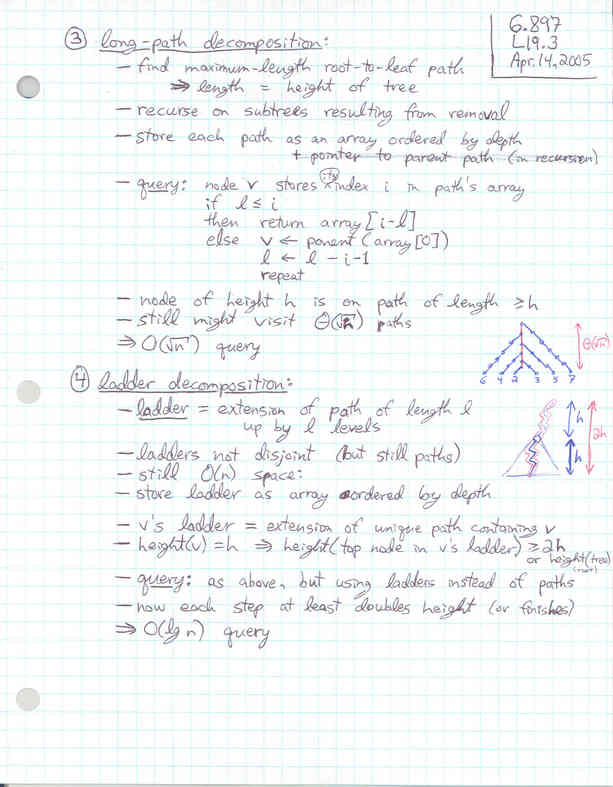 6.897
L19.3
Apr. 14, 2005
③ long-path decomposition:
– find maximum-length root-to-leaf path
⇒ length = height of tree
– recurse on subtrees resulting from removal
– store each path as an array ordered by depth
+ pointer to parent path (in recursion)
– query: node v stores its index i in path's array
if l ≤ i
then return array[i-l]
else v ← parent(array[0])
l ← l - i - 1
repeat
– node of height h is on path of length ≥h
– still might visit Θ(√n) paths
⇒ O(√n) query
Θ(√n)
6 4 2 3 5 7
④ ladder decomposition:
– ladder = extension of path of length l
up by l levels
h
2h
h
– ladders not disjoint (but still paths)
– still O(n) space:
– store ladder as array ordered by depth
– v's ladder = extension of unique path containing v
– height(v) = h ⇒ height(top node in v's ladder) ≥ 2h
or height(tree)
– query: as above, but using ladders instead of paths
– now each step at least doubles height (or finishes)
⇒ O(lg n) query